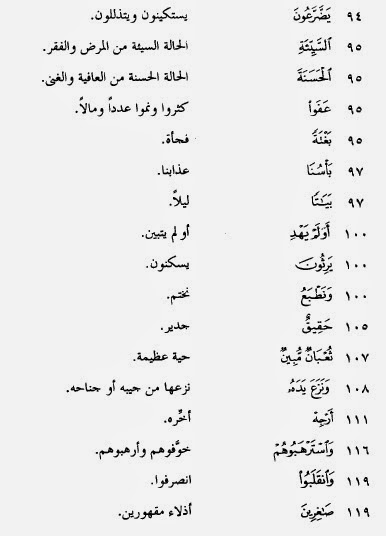 ٩٤ يَضَّرَّعُونَ يستكينون ويتذللون.
٩٥ ٱلسَّيِّئَةِ الحالة السيئة من المرض والفقر.
٩٥ ٱلْحَسَنَةَ الحالة الحسنة من العافية والغنى.
٩٥ عَفَوا۟ كثروا ونموا عدداً ومالاً.
٩٥ بَغْتَةً فجأة.
٩٧ بَأْسُنَا عذابنا.
٩٧ بَيَٰتًا ليلاً.
١٠٠ أَوَلَمْ يَهْدِ أو لم يتبين.
١٠٠ يَرِثُونَ يسكنون.
١٠٠ وَنَطْبَعُ نختم.
١٠٥ حَقِيقٌ جدير.
١٠٧ ثُعْبَانٌ مُّبِينٌ حية عظيمة.
١٠٨ وَنَزَعَ يَدَهُۥ نزعها من جيبه أو جناحه.
١١١ أَرْجِهْ أخّره.
١١٦ وَٱسْتَرْهَبُوهُمْ خوَّفوهم وأرهبوهم.
١١٩ وَٱنقَلَبُوا۟ انصرفوا.
١١٩ صَٰغِرِينَ أذلاء مقهورين.